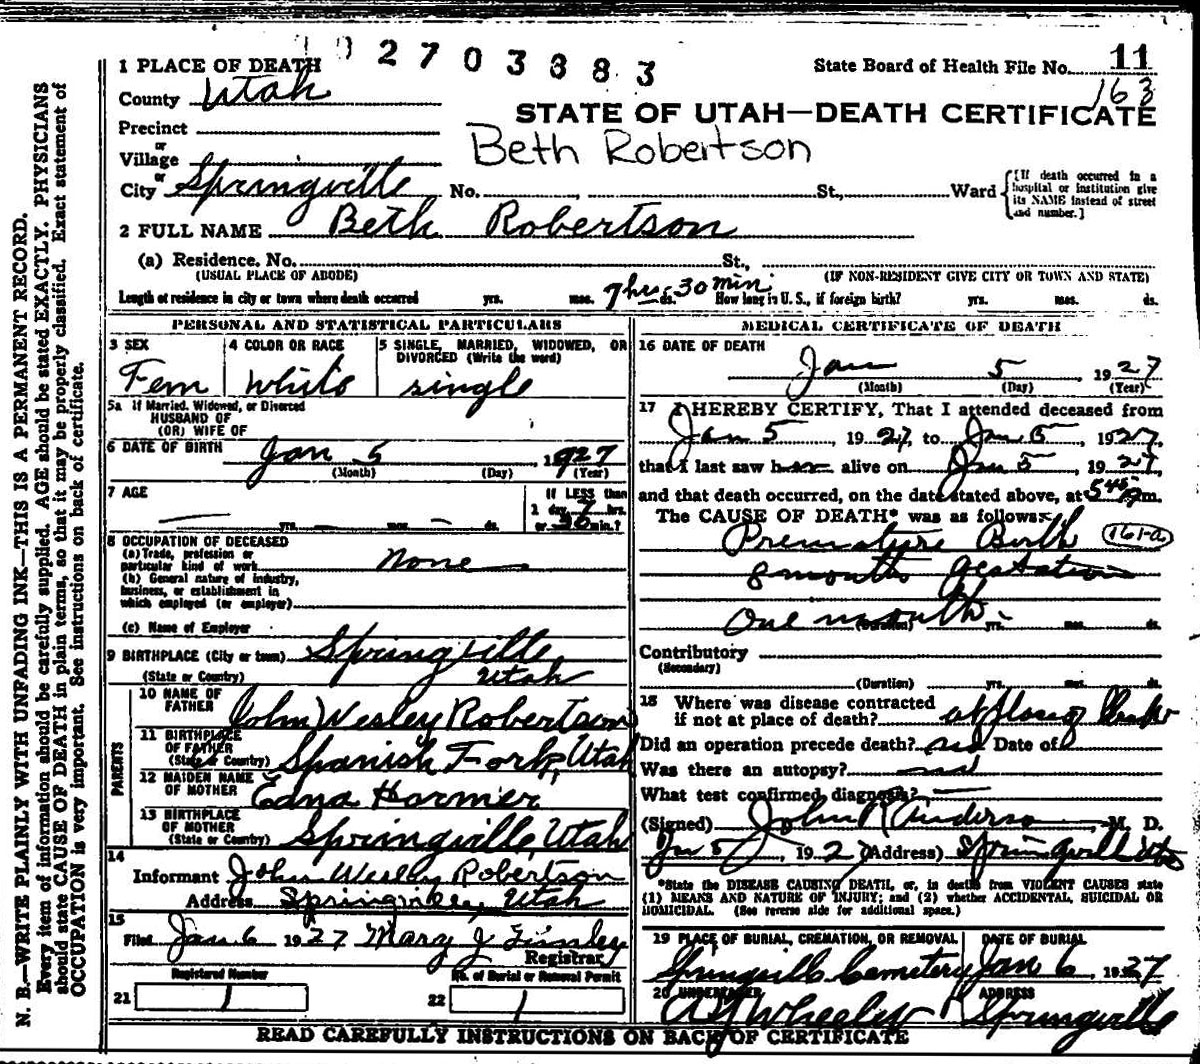 2703883
1 PLACE OF DEATH
State Board of Health File No. 11
County Utah
163
STATE OF UTAH—DEATH CERTIFICATE
Precinct
Beth Robertson
or
Village
or
City Springville No. St., Ward
[If death occurred in a hospital or institution give its NAME instead of street and number.]
2 FULL NAME Beth Robertson
(a) Residence. No. St.,
(USUAL PLACE OF ABODE) (IF NON-RESIDENT GIVE CITY OR TOWN AND STATE)
Length of residence in city or town where death occurred yrs. mos. 7 hrs. 30 min. ds. How long in U. S., if foreign birth? yrs. mos. ds.
PERSONAL AND STATISTICAL PARTICULARS
3 SEX
Fem
4 COLOR OR RACE
White
5 SINGLE, MARRIED, WIDOWED, OR
DIVORCED (Write the word)
single
5a If Married, Widowed, or Divorced
HUSBAND OF
(OR) WIFE OF
6 DATE OF BIRTH Jan 5 1927
(Month) (Day) (Year)
7 AGE
yrs. mos. ds.
If LESS than
1 day, 7 hrs.
or 30 min.?
8 OCCUPATION OF DECEASED
(a) Trade, profession or
particular kind of work None
(b) General nature of industry,
business, or establishment in
which employed (or employer)
(c) Name of Employer
9 BIRTHPLACE (City or town) Springville
(State or Country) Utah
PARENTS
10 NAME OF
FATHER John Wesley Robertson
11 BIRTHPLACE
OF FATHER
(State or Country) Spanish Fork, Utah
12 MAIDEN NAME
OF MOTHER Edna Harmer
13 BIRTHPLACE
OF MOTHER
(State or Country) Springville, Utah
14
Informant John Wesley Robertson
Address Springville, Utah
15
Filed Jan 6 1927 Mary J
Registrar
Registered Number No. of Burial or Removal Permit
21 1 22 1
MEDICAL CERTIFICATE OF DEATH
16 DATE OF DEATH
Jan 5 1927
(Month) (Day) (Year)
17 I HEREBY CERTIFY, That I attended deceased from
Jan 5, 1927, to Jan 5, 1927,
that I last saw her alive on Jan 5, 1927,
and that death occurred, on the date stated above, at 5 45 Pm.
The CAUSE OF DEATH* was as follows:
Premature Birth 161-a
8 months gestation
One month
(Duration) yrs. mos. ds.
Contributory
(Secondary)
(Duration) yrs. mos. ds.
18 Where was disease contracted
if not at place of death? at place
Did an operation precede death? no Date of
Was there an autopsy? no
What test confirmed diagnosis?
(Signed) John R Anderson M. D.
Jan 5, 1927 (Address) Springville Utah
*State the DISEASE CAUSING DEATH, or, in deaths from VIOLENT CAUSES state
(1) MEANS AND NATURE OF INJURY; and (2) whether ACCIDENTAL, SUICIDAL OR
HOMICIDAL. (See reverse side for additional space.)
19 PLACE OF BURIAL, CREMATION, OR REMOVAL
Springville Cemetery
DATE OF BURIAL
Jan 6 1927
20 UNDERTAKER
A Y Wheeler
ADDRESS
Springville
READ CAREFULLY INSTRUCTIONS ON BACK OF CERTIFICATE
N. B.—WRITE PLAINLY WITH UNFADING INK—THIS IS A PERMANENT RECORD.
Every item of information should be carefully supplied. AGE should be stated EXACTLY. PHYSICIANS
should state CAUSE OF DEATH in plain terms, so that it may be properly classified. Exact statement of
OCCUPATION is very important. See instructions on back of certificate.